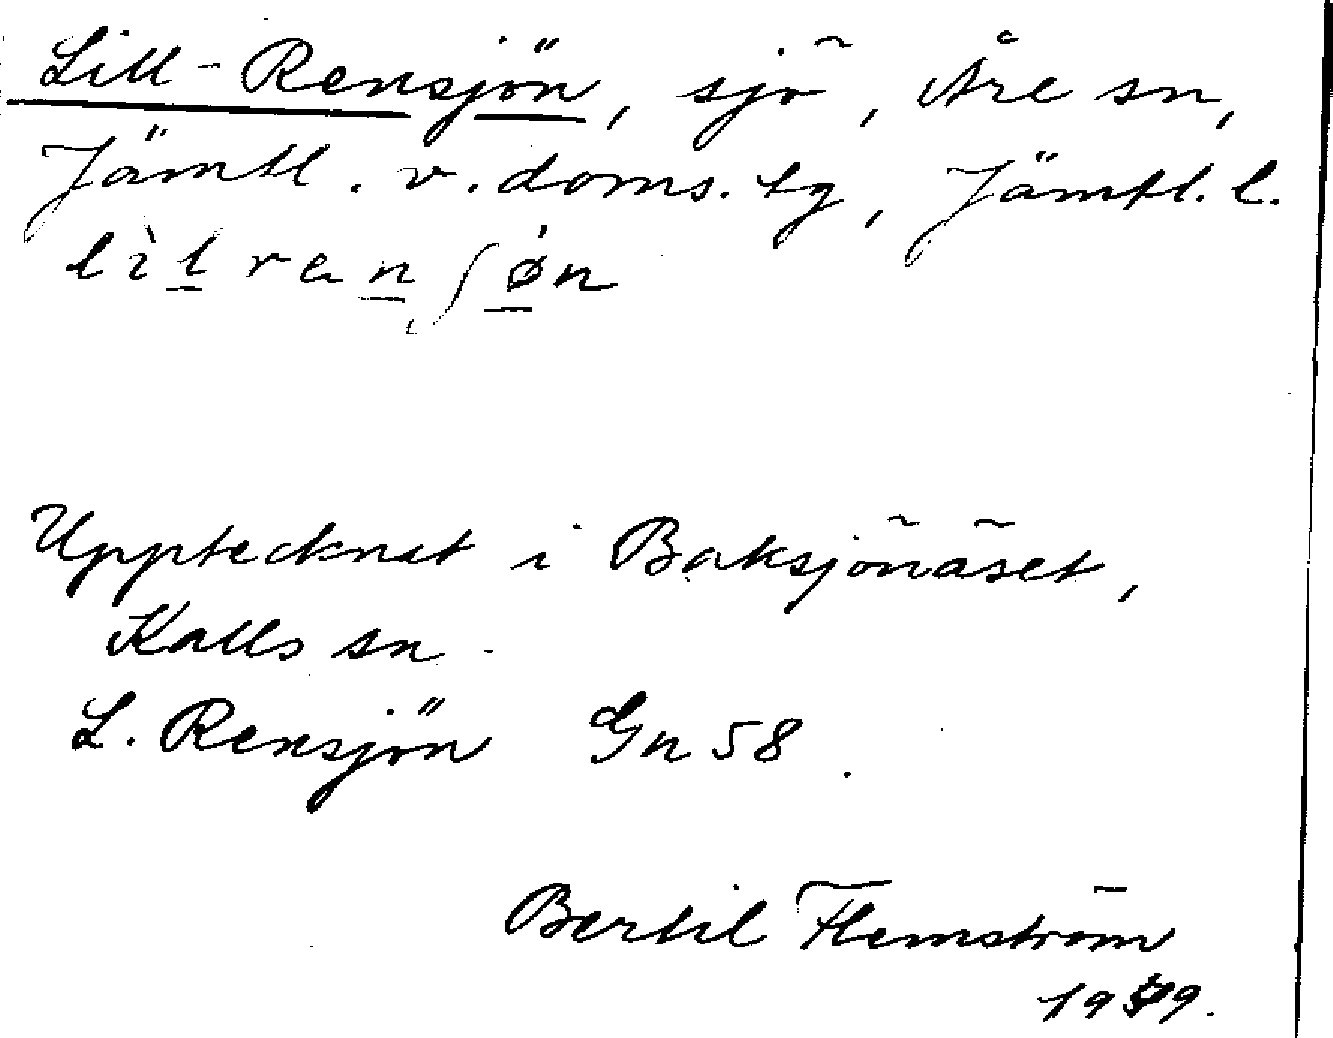 Lill-Rensjön, sjö, Åre sn,
Jämtl. v. doms. tg, Jämtl. l.
lìl ran ʃøn
Upptecknat i Baksjönäset,
Kalls sn.
L. Rensjön Gn 58.
Bertil Flemström